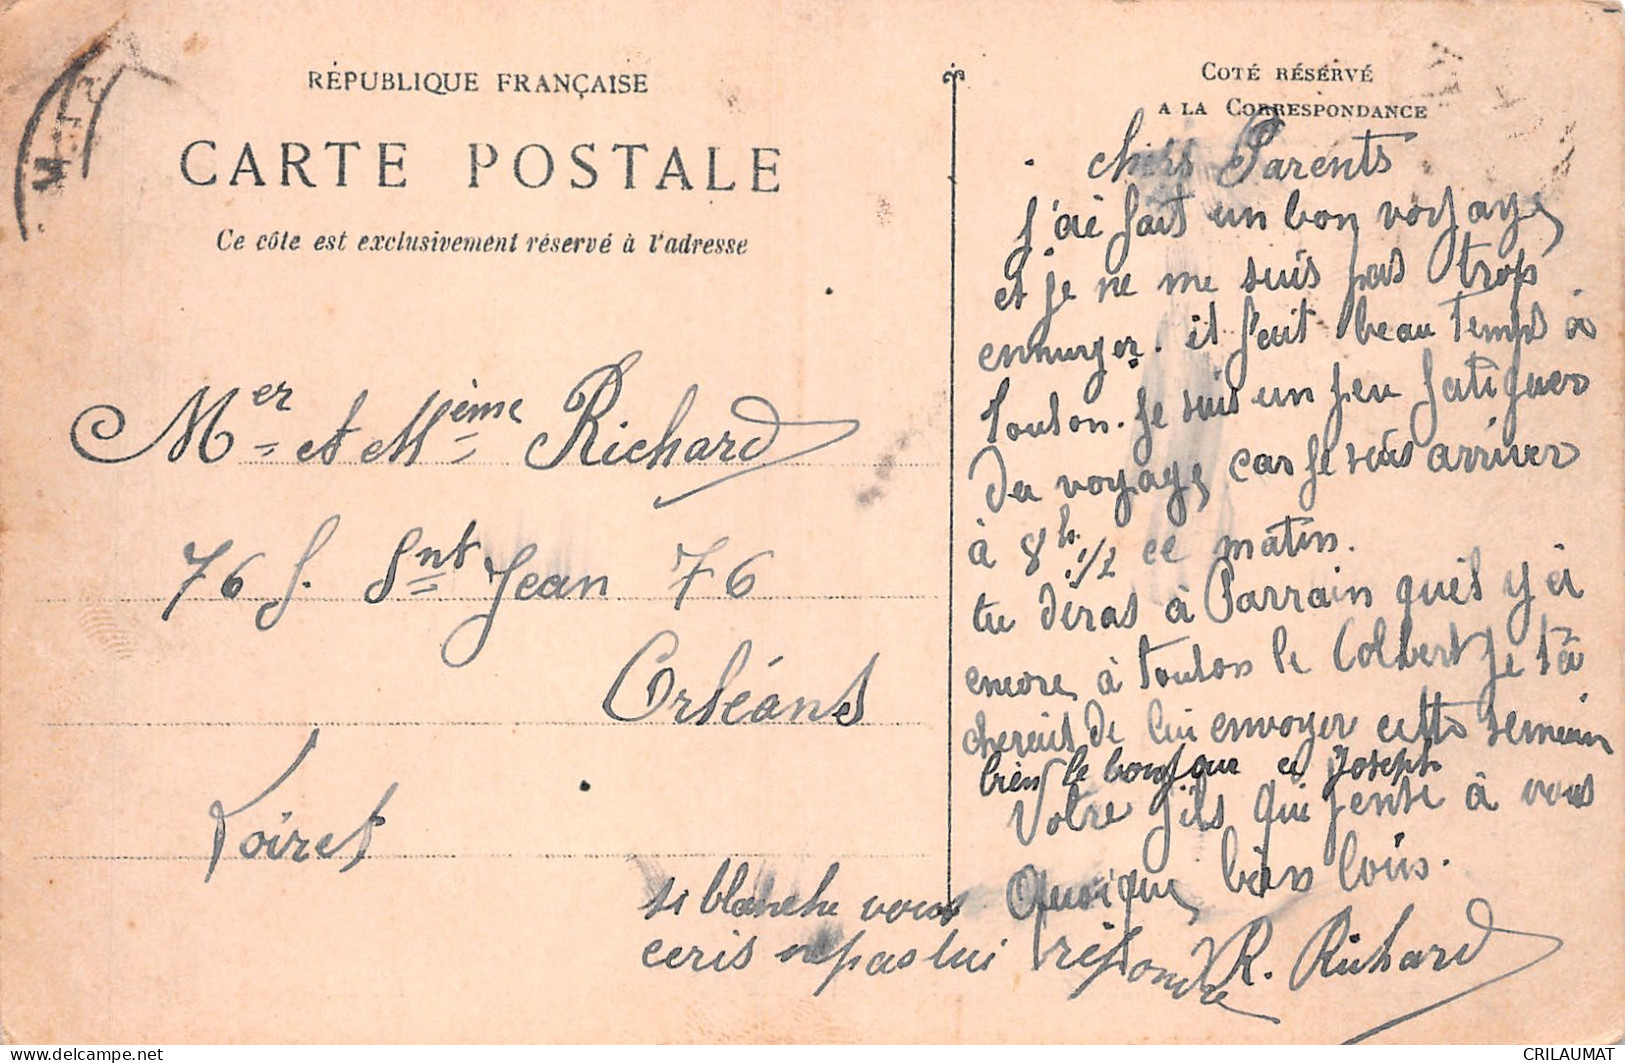 RÉPUBLIQUE FRANÇAISE
CARTE POSTALE
Ce côté est exclusivement réservé à l'adresse
Mer et Mème Richard
76 f. Snt Jean 76
Orléans
Loiret
COTÉ RÉSERVÉ
A LA CORRESPONDANCE
chers Parents
j'ai fait un bon voyage
et je ne me suis pas trop
ennuyer. il fait beau temps à
Toulon. Je suis un peu fatiguer
Du voyage car je suis arriver
à 8h 1/2 ce matin.
tu diras à Parrain quil y a
encore à toulon le Colbert je tâ
cherais de lui envoyer cette semain
bien le bonjour a Joseph
Votre fils qui pense à vous
Quoique bien loin.
R. Richard
si blanche vous
ecris ne pas lui répondre
CRILAUMAT